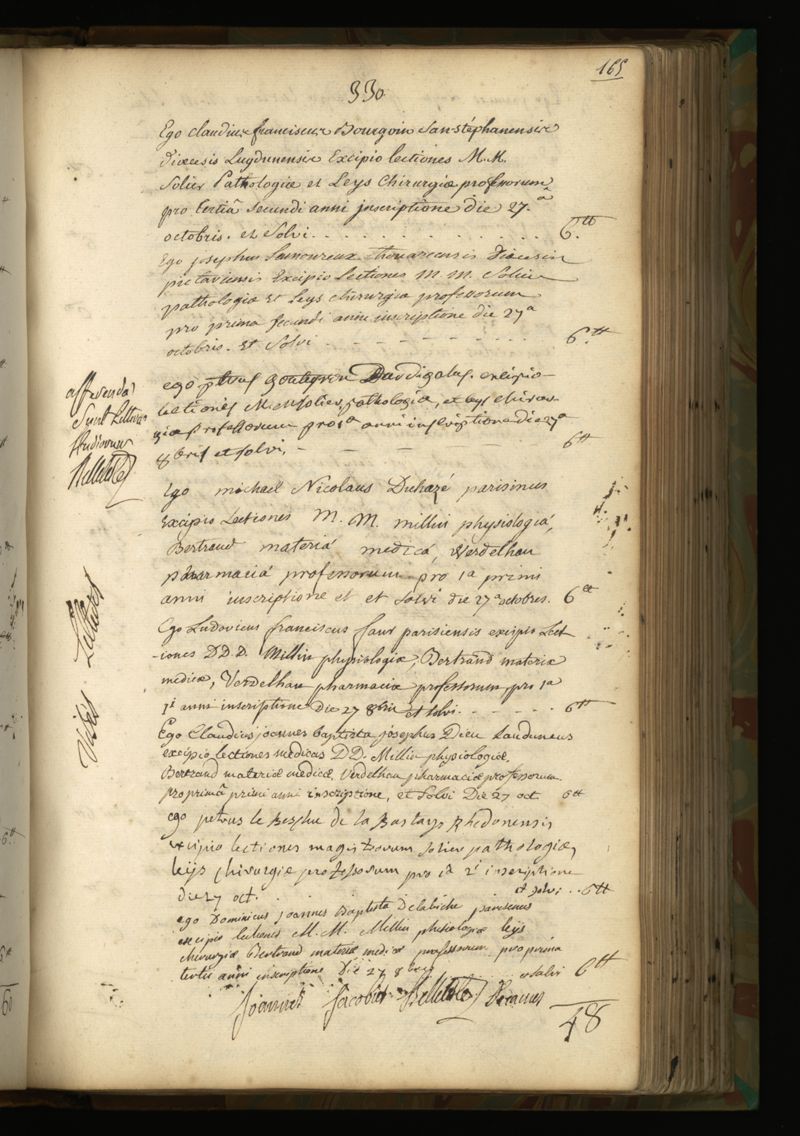 165
330
Ego claudius franciscus Bourgoin Sanstéphanensis
diœcesis Lugdunensis Excipio lectiones M.M.
Solier Pathologiæ et Leys Chirurgiæ professorum
pro tertiâ secundi anni inscriptione die 27.a
octobris. et Solvi . . . . . . . . . . . . 6.tt
Ego josephus Lamoureux thouarcensis Diœcesis
pictaviensis Excipio Lectiones M. M. Solier
pathologiæ Et Leys chirurgiæ professorum
pro prima secundi anni inscriptione die 27a
octobris. Et Solvi - - - - - - - - 6.tt
ego excipio
Lectiones M M Solier pathologiæ, et leys chirur
giæ professorum pro 1a anni inscriptione die 27a
8bris et solvi, - - - - - 6tt
afferendæ
Sunt Litteræ
Studiorum
Belleteste
Ego michael Nicolaus Duhazé parisinus
Excipio Lectiones M. M. millin physiologiá,
Bertrand materiá medicá, Verdelhan
pharmaciá professorum pro 1a primi
anni inscriptione et et solvi die 27a octobres. 6tt
Ego Ludovicus franciscus faur parisiensis excipio Lect
-iones D D D Millin physiologiæ, Bertrand materiæ
medicæ, Verdelhan pharmaciæ professorum, pro 1a
1i anni inscriptione Die 27 8bris et solvi . . . . . . 6tt
Visæ Litteræ
Ego Claudius joannes baptista josephus Dieu Laudunæus
excipio lectiones medicas D D. Millin physiologiæ.
Bertrand materiæ medicæ. Verdelhan pharmaciæ professorum
pro primâ primi anni inscriptione, et Solvi Die 27 oct 6tt
ego petrus le de la Bastays Rhedonensis
excipio lectiones magistrorum Solier pathologiæ,
leys chirurgiæ professorum pro 1a 2i inscriptione
die 27 oct. . . . . et solvi . . 6tt
ego Dominicus joannes Baptista Delabiche parisinus
excipio lectiones M. M. Millin phisiologiæ leys
chirurgiæ Bertrand materiæ medicæ professorum pro prima
tertii anni inscriptione Die 27 8bris . . . . . et solvi 6tt
Joannes Jacobus Belleteste Decanus
48